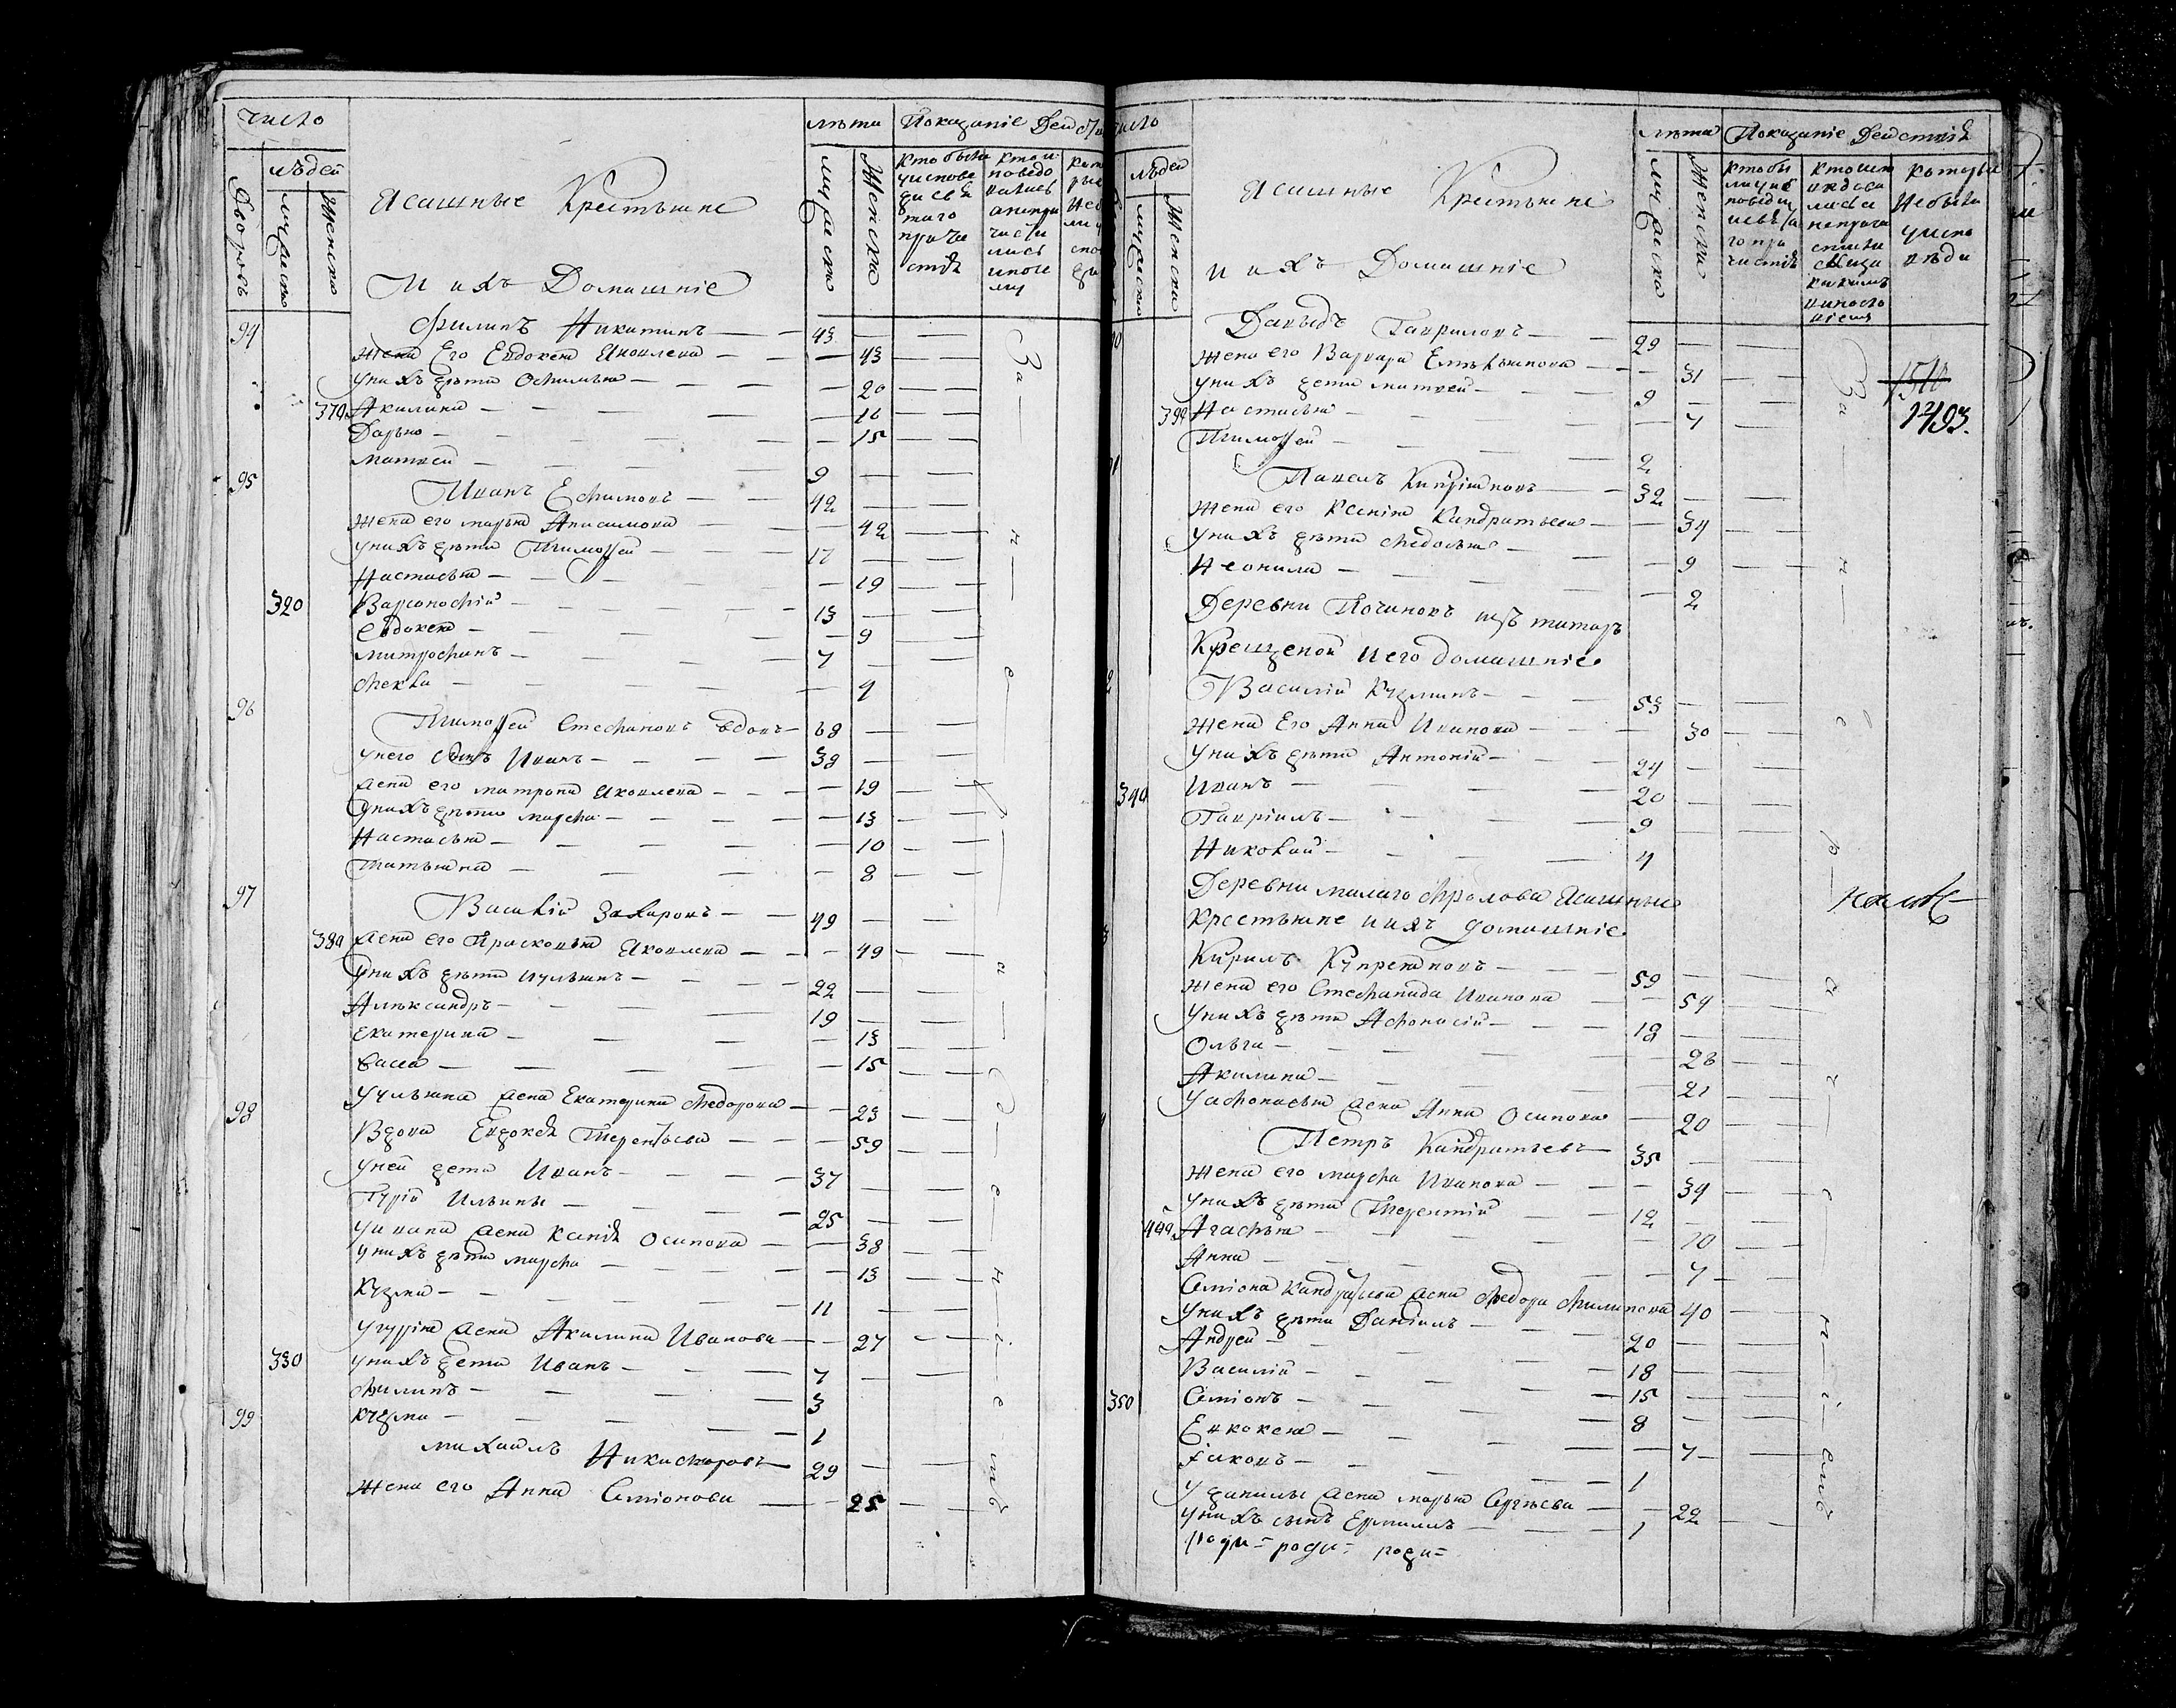 число
людей
Дворовъ
мужеска
Женска
Ясашные Крестьяне
И ихъ Домашніе
лѣта
мужеска
Женска
Показаніе Дейст
94 Филипъ Никитинъ 43
жена Его Евдокея Яковлева 43
унихъ дѣти 20
370 Акилина 16
Дарья 15
матвеи 9
95 Иванъ Ефимовъ 42
жена его марья Анисимова 42
унихъ дѣти Тимофеи 17
Настасья 19
320 Варсонофіи 13
Евдокея 9
митрофанъ 7
Фекла 4
96 Тимофеи Стефановъ вдовъ 68
унего сынъ Иванъ 38
жена его матрона Яковлева 19
унихъ дѣти марфа 13
Настасья 10
Татьяна 8
97 Василіи Захаровъ 49
380 жена его Прасковья Яковлева 49
унихъ дѣти иульянъ 22
Алѣксандръ 19
Екатерина 13
васса 15
уульяна жена Екатерина Федорова 23
98 Вдова Евдокея Терентьева 59
уней дети Иванъ 37
Гуріи Ильины 25
уивана жена Ксенія Осипова 38
унихъ дѣти марфа 13
Кузма 11
угурія жена Акилина Иванова 27
330 унихъ дети Иванъ 7
Филипъ 3
кузма 1
99 михаилъ Никифоровъ 29
жена его Анна Семіонова 25
число
людей
мужеска
Женска
Ясашные Крестьяне
и ихъ Домашніе
лѣта
мужеска
Женска
Показаніе Деиствія
Давыдъ Гавриловъ 29
жена его Варвара Емельянова 31
унихъ дети матвеи 9
390 Настасья 7
Тимофеи 2
Павелъ Кипріяновъ 32
жена его Ксенія Кандратьева 34
унихъ дѣти Федосья 9
Неонила 2
Деревни Починокъ изъ татаръ
Крещеной и его домашніе
Василіи Кузминъ 53
жена Его Анна Иванова 30
унихъ дѣти Антоніи 24
340 Иванъ 20
Гавріилъ 9
Николаи 4
Деревни малаго Фролова Ясашные
крестьяне и ихъ домашніе
Кирилъ Купреяновъ 59
жена его Стефанида Иванова 54
унихъ дѣти Афонасіи 18
Ольга 26
Акилина 21
уафонасья жена Анна Осипова 20
Петръ Кандратьевъ 35
жена его марфа Иванова 39
унихъ дѣти Терентіи 12
Агафья 10
Анна 7
Семіона Кандратьева жена Федора Филипова 40
унихъ дѣти Даніилъ 20
Андреи 18
Василіи 15
350 Семіонъ 8
7
Іаковъ 1
уданилы жена марья Сергѣева 22
унихъ сынъ Ермилъ 1
роди= роди= роди=
1510
1493.